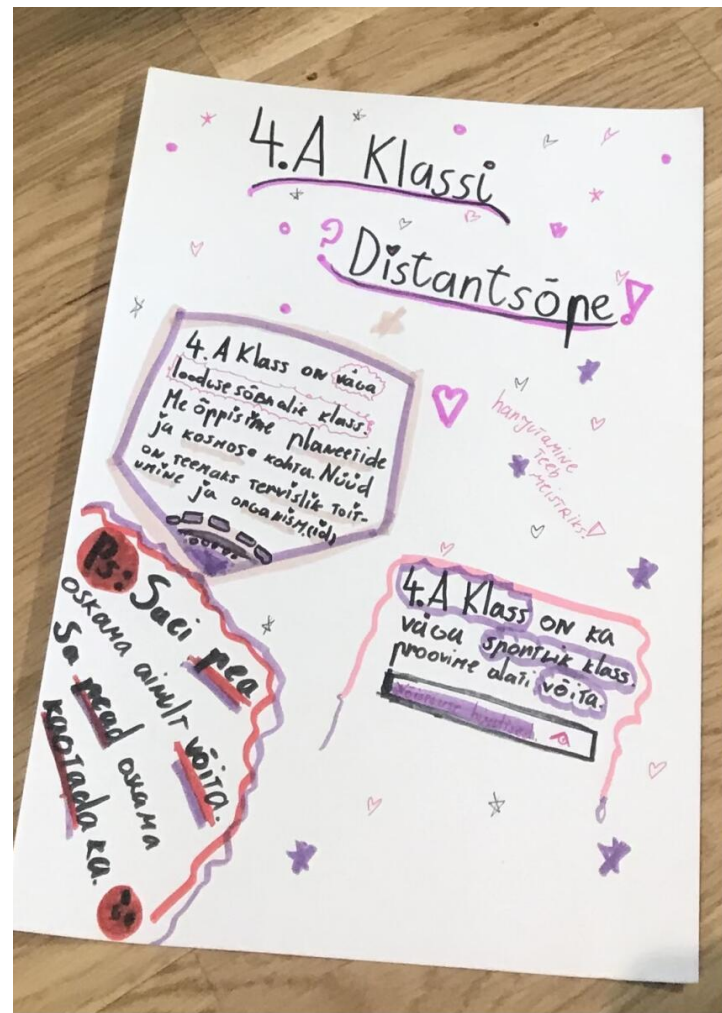 4.A Klassi
? Distantsõpe!
4. A Klass on väga
looduse sõbralik klass.
Me õppisime planeetide
ja kosmose kohta. Nüüd
on teemaks tervislik toit-
umine ja organism(eid)
harjutamine
teeb
meistriks!
4.A Klass on ka
väga sportlik klass.
proovime alati võita.
Ps: Sa ei pea
oskama ainult võita.
Sa pead oskama
kaotada ka.